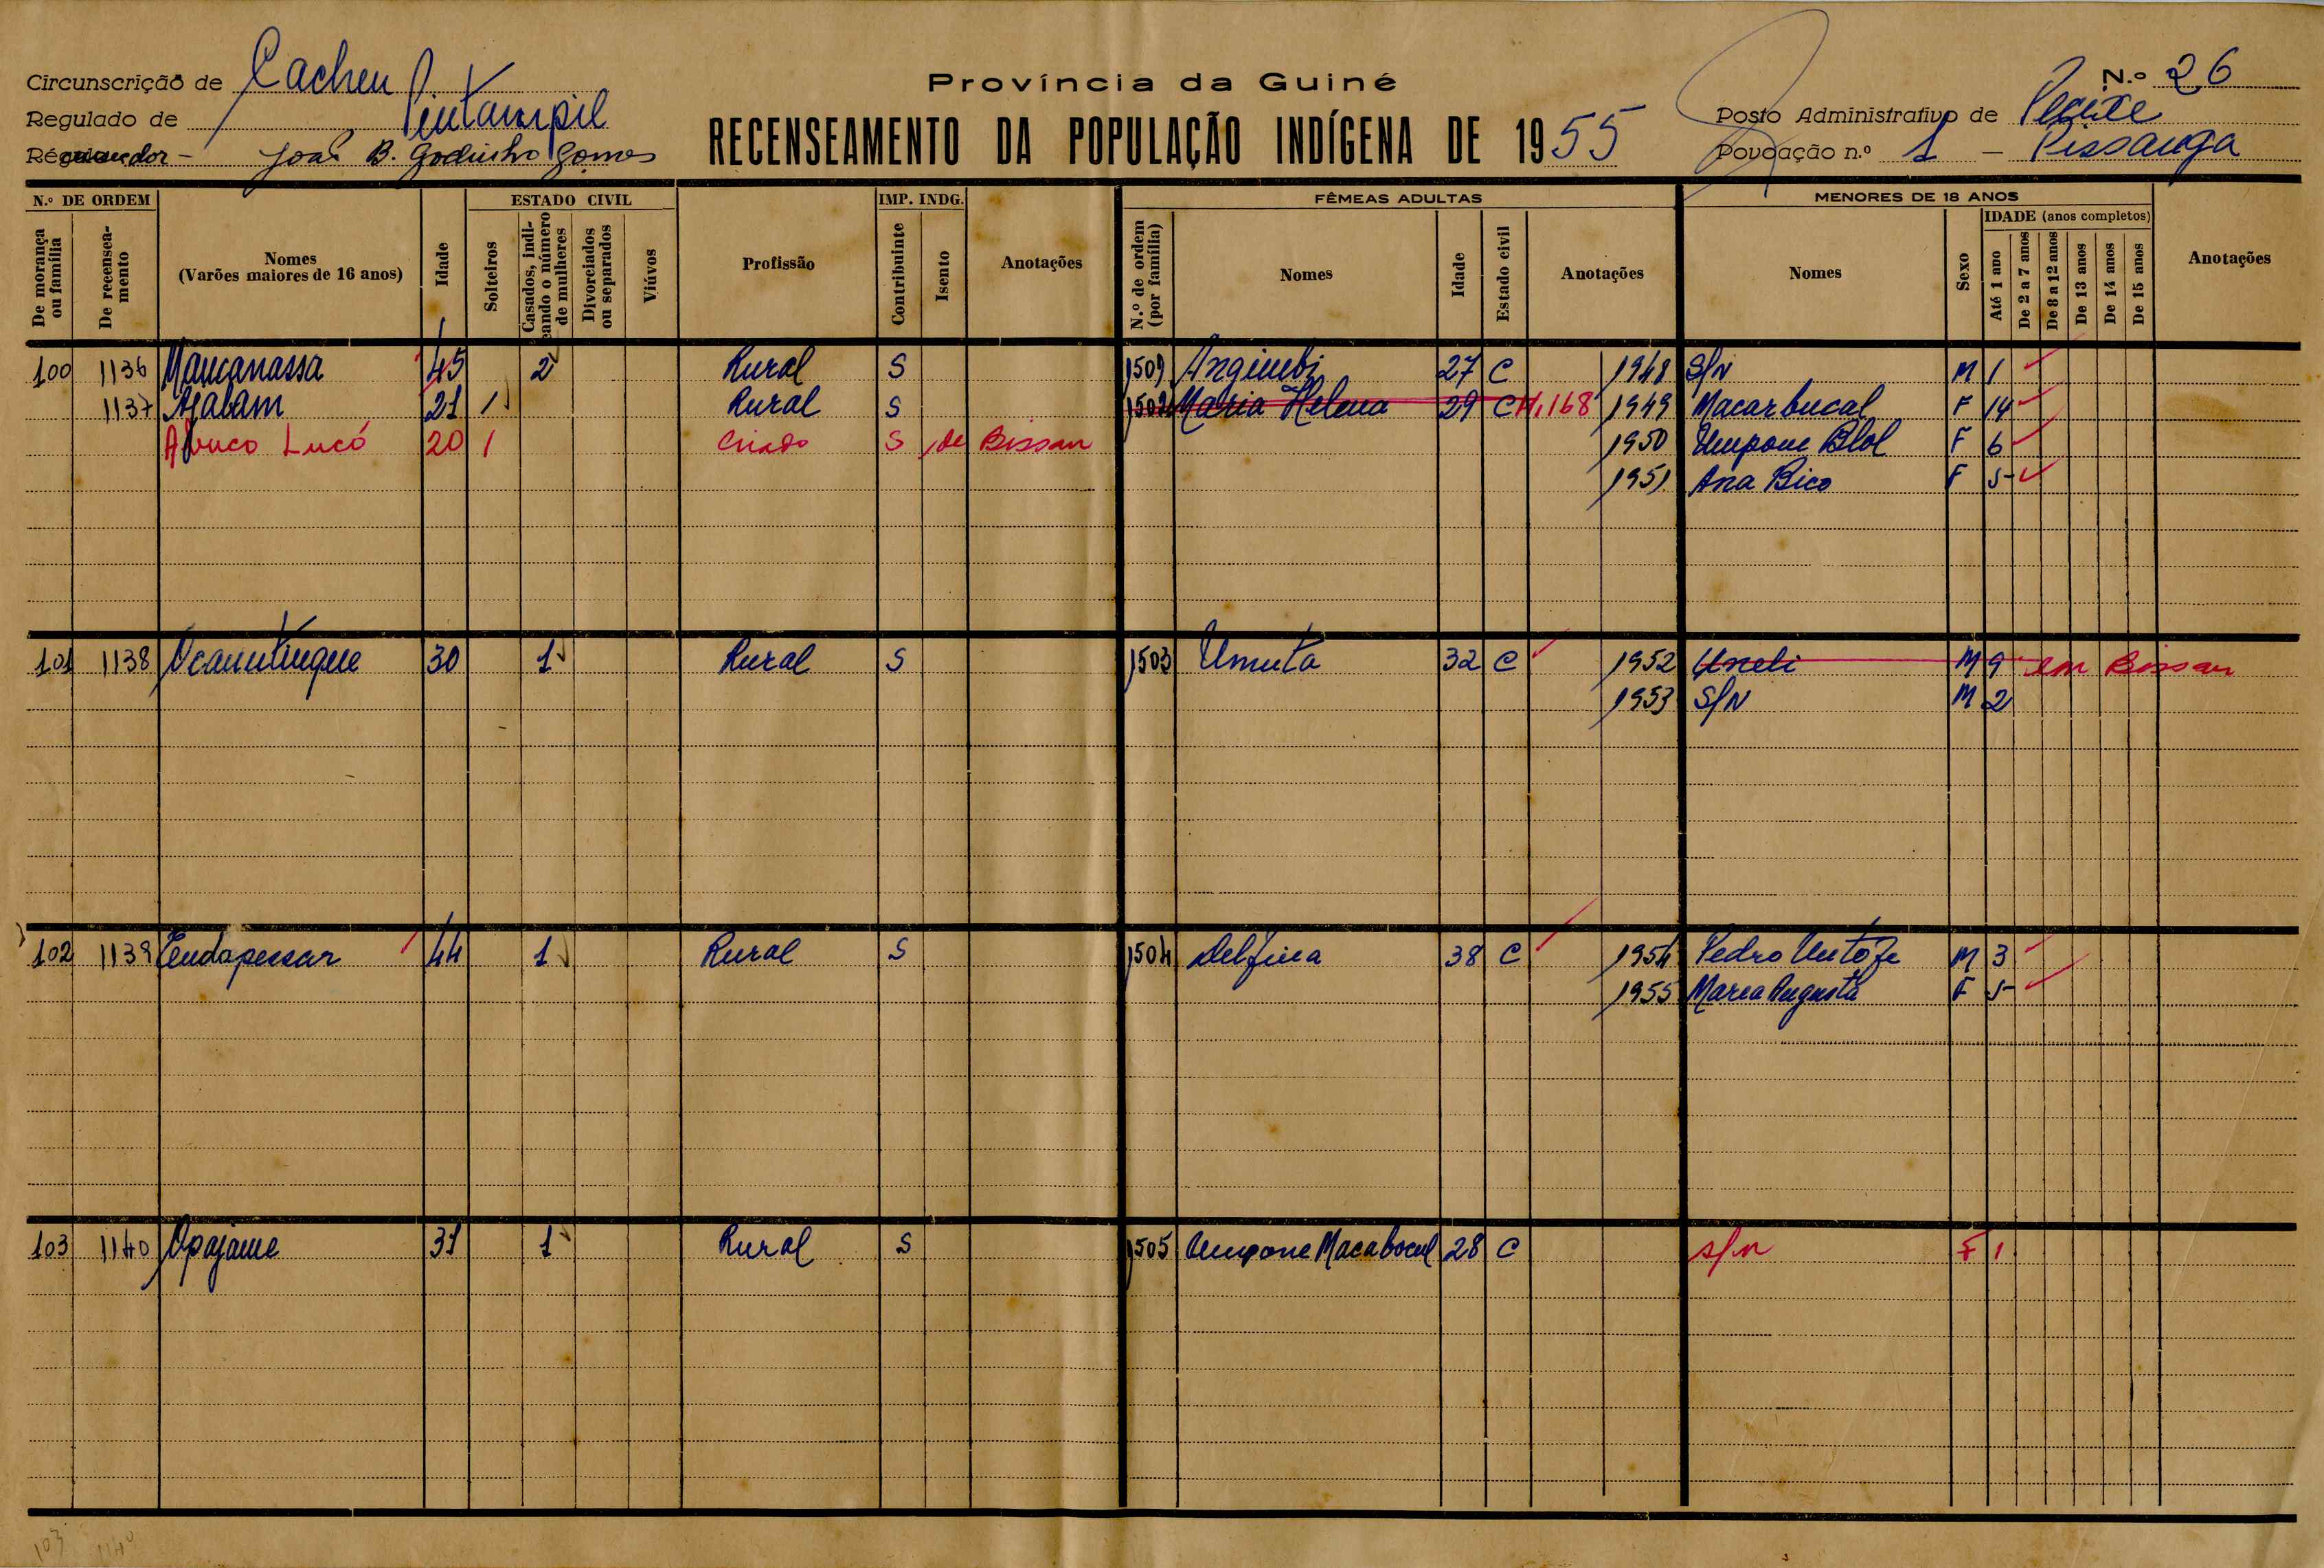 Circunscrição de Cacheu
Província da Guiné
N.º 26
Regulado de Pintampil
Posto Administrativo de Pecixe
Joaõ B. Godinho Gomes
RECENSEAMENTO DA POPULAÇÃO INDÍGENA DE 1955
Povoação n.º 1 – Pissanga
N.º DE ORDEM
De morança ou família
De recenseamento
Nomes
(Varões maiores de 16 anos)
Idade
ESTADO CIVIL
Solteiros
Casados, indicando o número de mulheres
Divorciados ou separados
Viúvos
Profissão
IMP. INDG.
Contribuinte
Isento
Anotações
FÊMEAS ADULTAS
N.º de ordem (por família)
Nomes
Idade
Estado civil
Anotações
MENORES DE 18 ANOS
Nomes
Sexo
IDADE (anos completos)
Até 1 ano
De 2 a 7 anos
De 8 a 12 anos
De 13 anos
De 14 anos
De 15 anos
Anotações
100 1136 Mancanassa 45 2 Rural S 1501 Anginubi 27 C 1948 S/N M 1
1137 Ajabam 21 1 Rural S 1502 Maria Helena 29 C 168 1949 Macarbucal F 14
Abuco Lucó 20 1 Criado S de Bissau 1950 Umpone Blol F 6
1951 Ana Bico F 5
101 1138 Ocanutingue 30 1 Rural S 1503 Umuta 32 C 1952 Uneli M 9 em Bissau
1953 S/N M 2
102 1139 44 1 Rural S 1504 Delfina 38 C 1954 Pedro M 3
1955 Maria Augusta F 5
103 1140 Opajame 31 1 Rural S 1505 Umpone Macabocul 28 C s/n F 1
103 1140